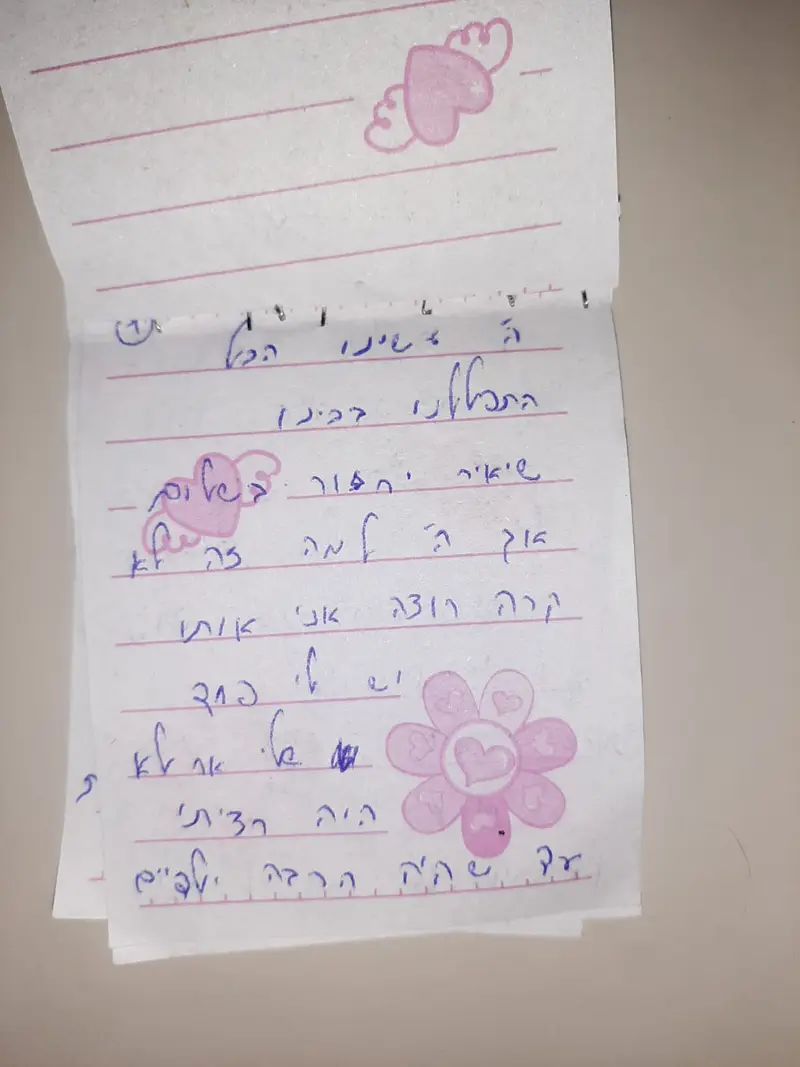 ה' עשינו הכל
התפללנו בכינו
שיאיר יחזור בשלום
אוך ה' למה זה לא
קרה רוצה אני אותו
יש לי פחד
שלי לא
היה רציתי
עד שהיה הרבה ילפיים